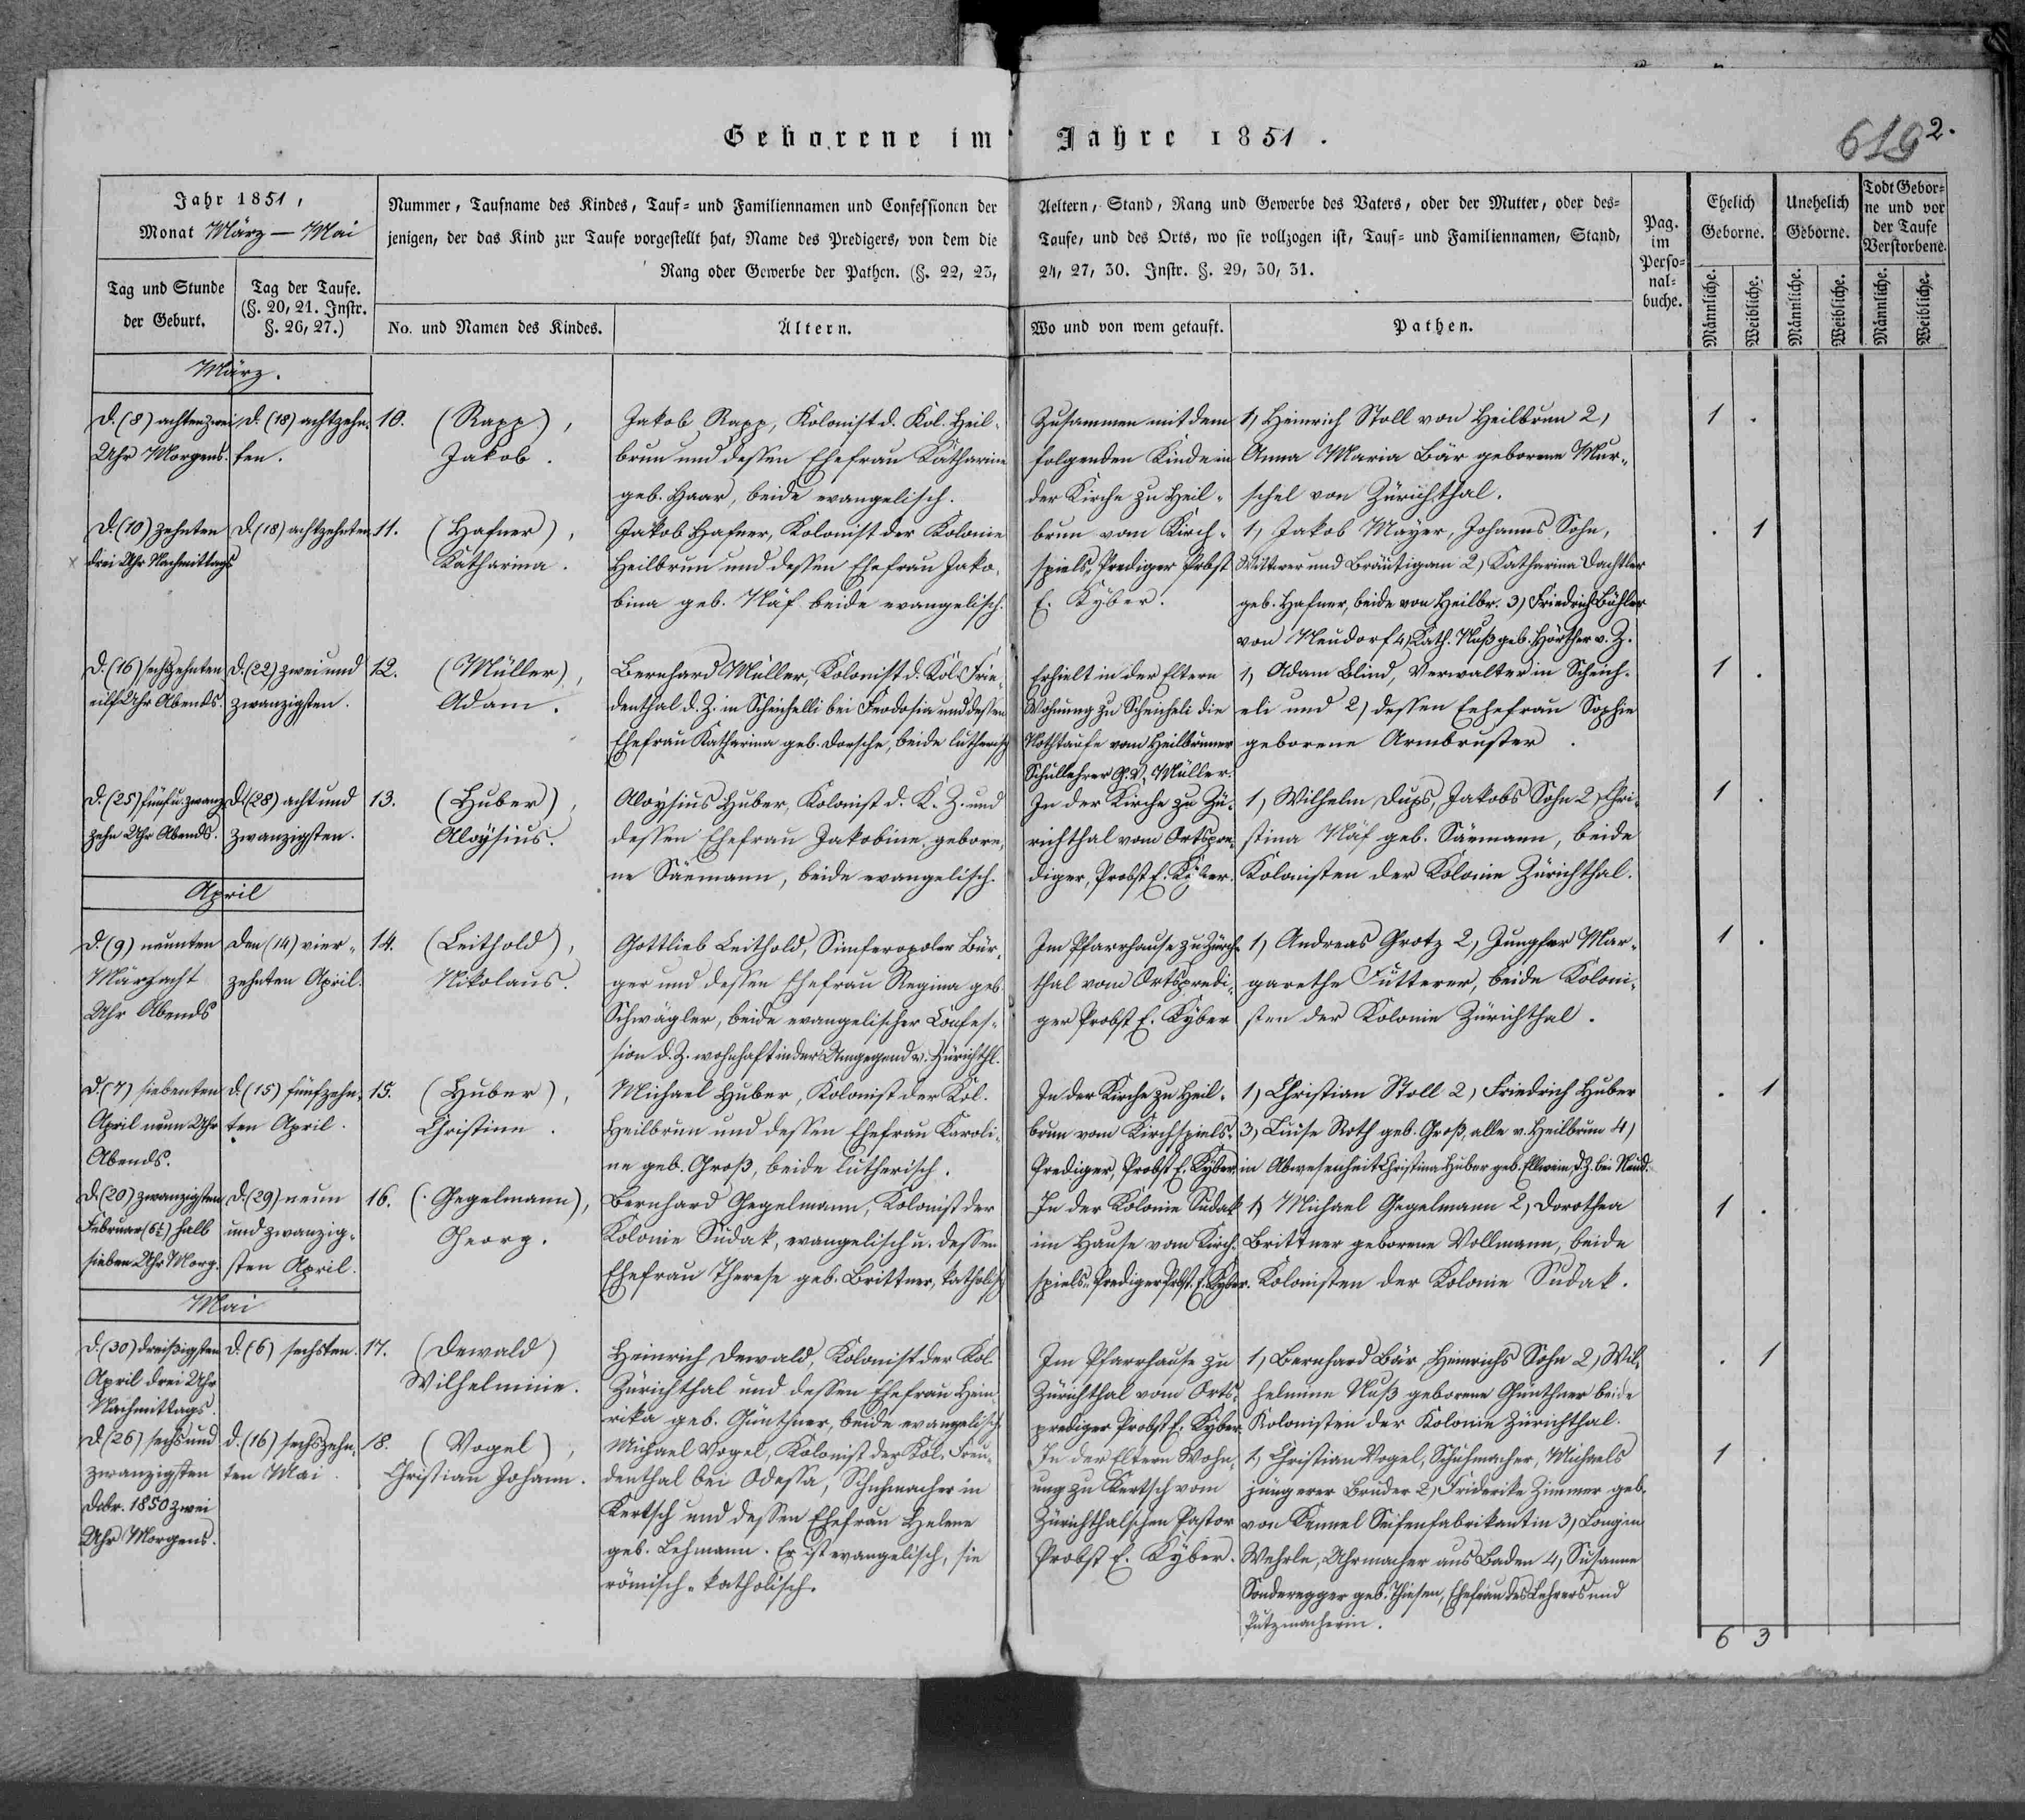 Geborene im Jahre 1851.
619 2.
Jahr 1851,
Monat März — Mai
Tag und Stunde
der Geburt.
Tag der Taufe.
(§. 20, 21. Instr.
§. 26, 27.)
Nummer, Taufname des Kindes, Tauf- und Familiennamen und Confessionen der Aeltern, Stand, Rang und Gewerbe des Vaters, oder der Mutter, oder des-
jenigen, der das Kind zur Taufe vorgestellt hat, Name des Predigers, von dem die Taufe, und des Orts, wo sie vollzogen ist, Tauf- und Familiennamen, Stand,
Rang oder Gewerbe der Pathen. (§. 22, 23, 24, 27, 30. Instr. §. 29, 30, 31.
No. und Namen des Kindes.
Ältern.
Wo und von wem getauft.
Pathen.
Pag.
im
Perso-
nal-
buche.
Ehelich
Geborne.
Unehelich
Geborne.
Todt Gebor-
ne und vor
der Taufe
Verstorbene.
Männliche.
Weibliche.
Männliche.
Weibliche.
Männliche.
Weibliche.
März.
D. (8) achten zwei
Uhr Morgens.
d. (18) achtzehn-
ten.
10. (Rapp),
Jakob.
Jakob Rapp, Kolonist d. Kol. Heil-
brun und dessen Ehefrau Katharine
geb. Haar, beide evangelisch.
Zusammen mit dem
folgenden Kinde in
der Kirche zu Heil-
1) Heinrich Stoll von Heilbrun 2)
Anna Maria Bär geborene Mur-
schel von Zürichthal.
1 .
D. (10) zehnten
x drei Uhr Nachmittags
D. (18) achtzehnten
11. (Hafner),
Katharina.
Jakob Hafner, Kolonist der Kolonie
Heilbrun und dessen Ehefrau Jako-
bina geb. Näf beide evangelisch.
brun vom Kirch-
spiels-Prediger Probst
E. Kyber.
1, Jakob Mayer, Johanns Sohn,
Wittwer und Bräutigam 2) Katharina Dachtler
geb. Hafner, beide von Heilbr. 3) Friedrich Bühler
von Neudorf 4) Kath. Nuß geb. Hörther v. Z.
. 1
D. (16) sechzehnten
eilf Uhr Abends.
D. (22) zwei und
zwanzigsten.
12. (Müller),
Adam.
Bernhard Müller, Kolonist d. Kol. Frie-
denthal d. Z. in Scheichelli bei Feodosia und dessen
Ehefrau Katharina geb. Dorsche, beide lutherisch
Erhielt in der Eltern
Wohnung zu Scheicheli die
Nothtaufe vom Heilbrunner
Schullehrer G. D. Müller.
1, Adam Blind, Verwalter in Scheich-
eli und 2) dessen Eehefrau Sophie
geborene Armbruster.
1 .
D. (25) fünf u. zwanz.
zehn Uhr Abends.
D. (28) acht und
zwanzigsten.
13. (Huber),
Aloysius.
Aloysius Huber, Kolonist d. K. Z. und
dessen Ehefrau Jakobine, gebore-
ne Säemann, beide evangelisch.
In der Kirche zu Zü-
richthal vom Ortspre-
diger, Probst E. Kyber.
1) Wilhelm Dups, Jakobs Sohn 2) Chri-
stina Näf geb. Säemann, beide
Kolonisten der Kolonie Zürichthal.
1 .
April
D. (9) neunten
März acht
Uhr Abends
Den (14) vier-
zehnten April.
14. (Leithold),
Nikolaus.
Gottlieb Leithold, Simferopoler Bür-
ger und dessen Ehefrau Regina geb.
Schwägler, beide evangelischer Confes-
sion d. Z. wohnhaft in der Umgegend v. Zürichthl.
Im Pfarrhause zu Zürch-
thal vom Ortspredi-
ger Probst E. Kyber
1) Andreas Grotz 2) Jungfer Mar-
garethe Fütterer, beide Koloni-
sten der Kolonie Zürichthal.
1 .
D. (7) siebenten
April neun Uhr
Abends.
d. (15) fünfzehn-
ten April.
15. (Huber),
Christine.
Michael Huber, Kolonist der Kol.
Heilbrun und dessen Ehefrau Karoli-
ne geb. Groß, beide lutherisch.
In der Kirche zu Heil-
brun vom Kirchspiels-
Prediger, Probst E. Kyber
1) Christian Stoll 2) Friedrich Huber
3) Luise Roth geb. Groß, alle v. Heilbrun 4)
in Abwesenheit Christina Huber geb. Ellwein, d. Z. bei Neud.
. 1
D. (20) zwanzigsten
Februar (6½) halb
sieben Uhr Morg.
D. (29) neun
und zwanzig-
sten April.
16. (Gegelmann),
Georg.
Bernhard Gegelmann, Kolonist der
Kolonie Sudak, evangelisch u. dessen
Ehefrau Therese geb. Brittner, katholisch
In der Kolonie Sudak
im Hause vom Kirch-
spiels-Prediger Probst E. Kyber.
1) Michael Gegelmann 2) Dorothea
Brittner geborene Vollmann, beide
Kolonisten der Kolonie Sudak.
1 .
Mai
D. (30) dreißigsten
April drei Uhr
Nachmittags.
d. (6) sechsten.
17. (Dewald)
Wilhelmine.
Heinrich Dewald, Kolonist der Kol
Zürichthal und dessen Ehefrau Hein-
rika geb. Günthner, beide evangelisch
Im Pfarrhause zu
Zürichthal vom Orts-
prediger Probst E. Kyber
1, Bernhard Bär, Heinrichs Sohn 2) Wil-
helmine Nuß geborene Günthner beide
Kolonisten der Kolonie Zürichthal.
. 1
D. (26) sechs und
zwanzigsten
Debr. 1850 zwei
Uhr Morgens.
d. (16) sechszehn-
ten Mai.
18. (Vogel),
Christian Johann.
Michael Vogel, Kolonist der Kol. Freu-
denthal bei Odessa, Schuhmacher in
Kertsch und dessen Ehefrau Helene
geb. Lehmann. Er ist evangelisch, sie
römisch-katholisch.
In der Eltern Wohn-
ung zu Kertsch vom
Zürichthalschen Pastor
Probst E. Kyber.
1, Christian Vogel, Schuhmacher, Michaels
jüngerer Bruder 2) Friderike Zimmer geb.
von Kennel Seifenfabrikantin 3) Longin
Wehrle, Uhrmacher aus Baden 4, Susanne
Sonderegger geb. Thiesen, Ehefrau des Lehrers und
Putzmacherin.
1 .
6 3